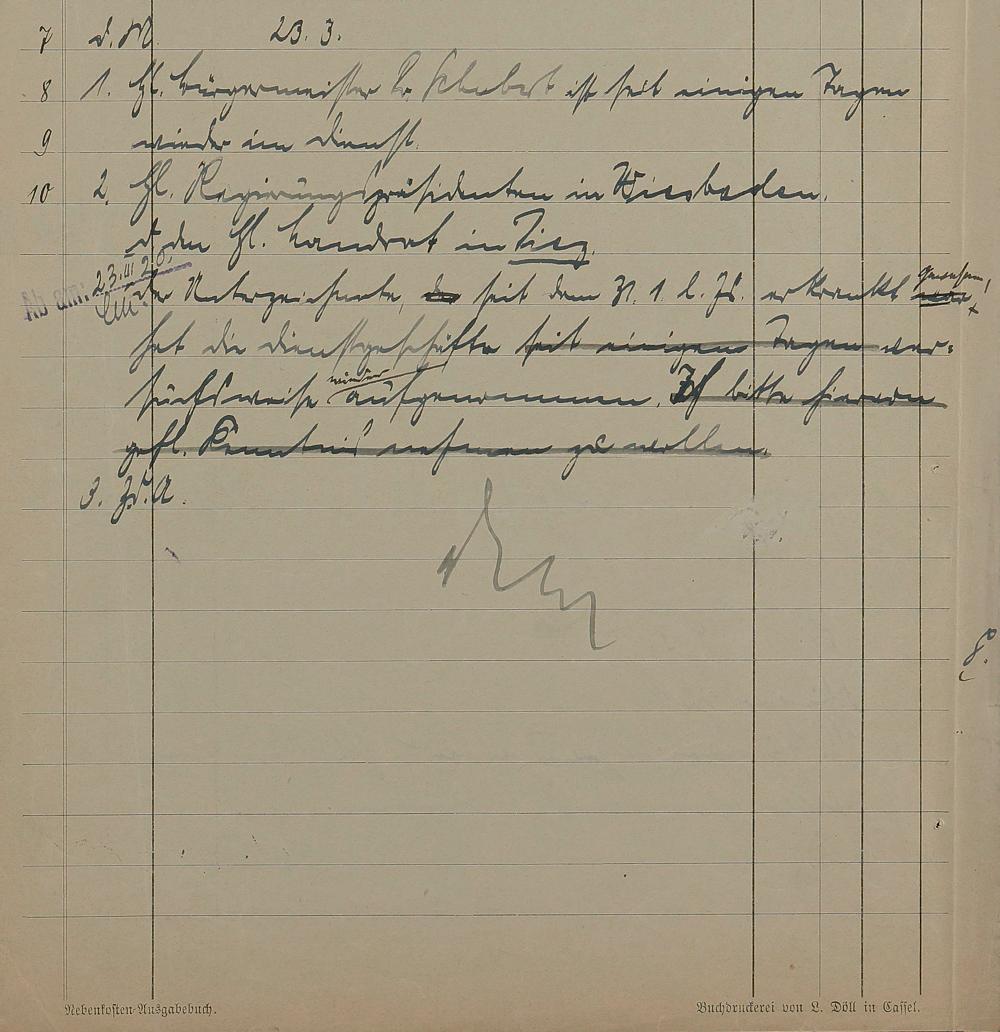 7 d. M. 23. 3.
8 1. H. Bürgermeister Dr. Schubert ist seit einigen Tagen
9 wieder im Dienst.
10 2. H. Regierungspräsidenten in Wiesbaden.
d. den H. Landrat in Diez.
Ab am: 23.III 20.
Der Unterzeichnete, der seit dem 31. 1. l. Js. erkrankt war, gewesen,
hat die Dienstgeschäfte seit einigen Tagen ver-
suchsweise wieder aufgenommen. Ich bitte hiervon
gefl. Kenntnis nehmen zu wollen.
3. Z.d.A.
Nebenkosten-Ausgabebuch.
Buchdruckerei von L. Döll in Cassel.